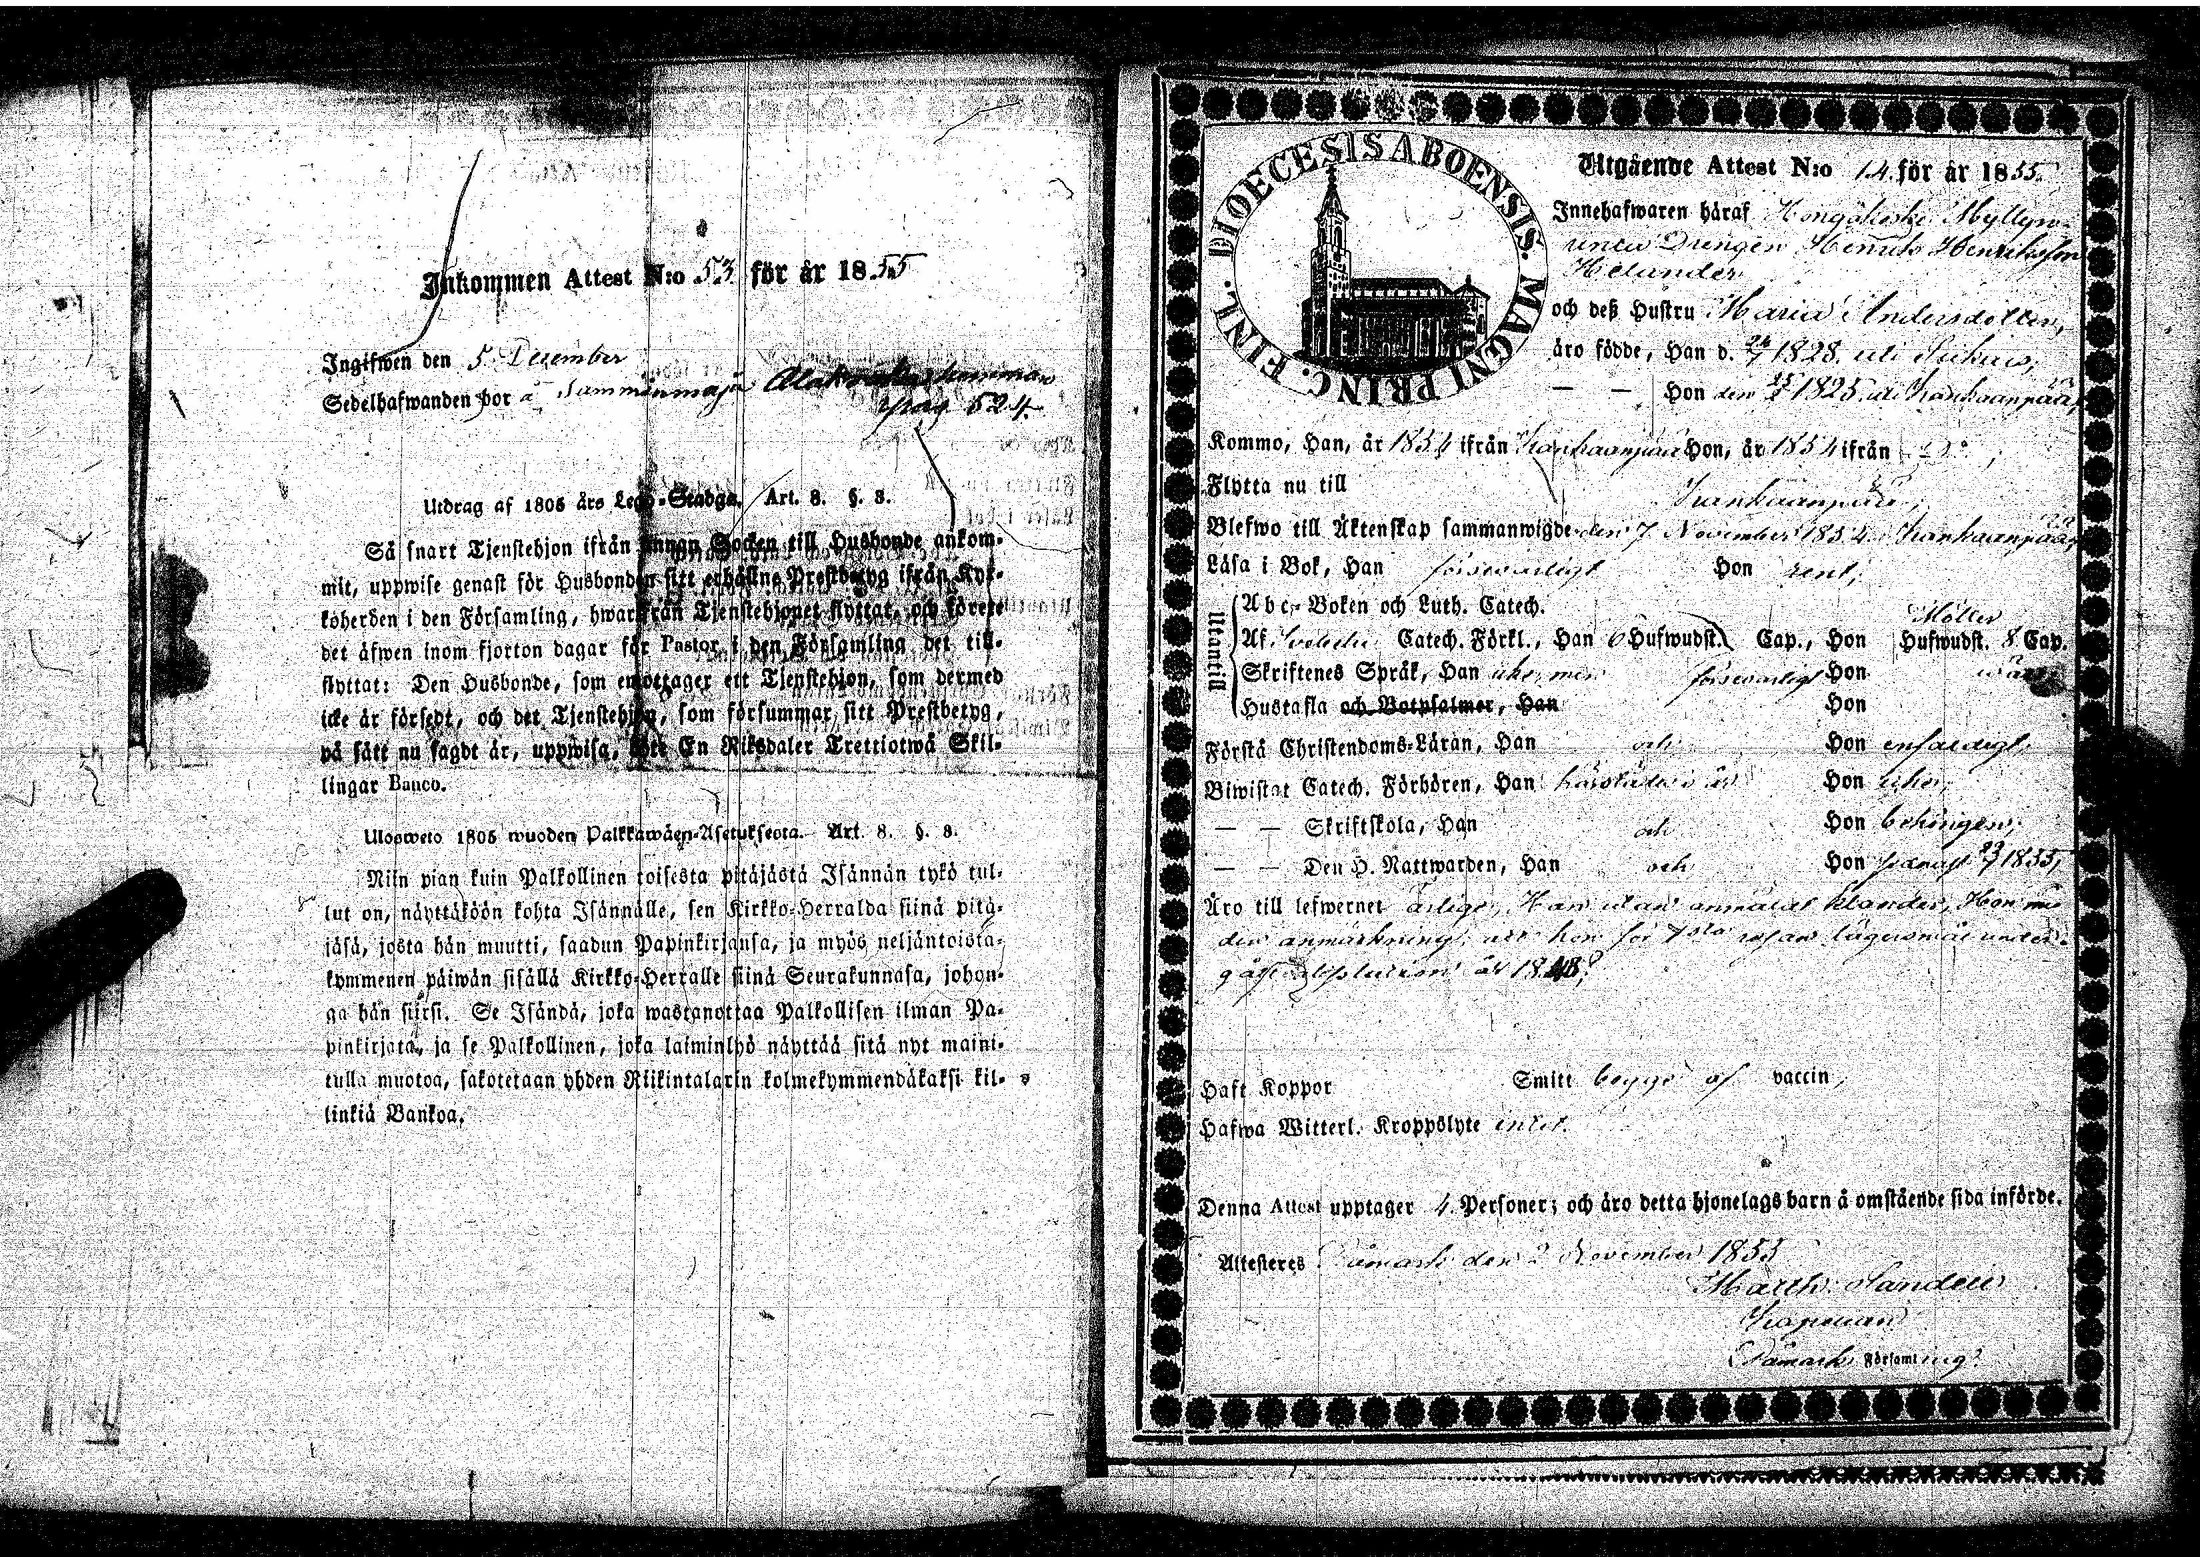 Inkommen Attest N:o 53 för år 1855
Ingifwen den 5 December
Sedelhafwanden bor å Samminmaja Alakoski
pag 524.
Utdrag af 1805 års Lego-Stadga. Art. 8. §. 8.
Så snart Tjenstehjon ifrån annan Socken till Husbonde ankom-
mit, uppwise genast för Husbonden sitt erhållne Prestbetyg ifrån Kyr-
koherden i den Församling, hwarifrån Tjenstehjonet flyttat, och förete
det äfwen inom fjorton dagar för Pastor i den Församling det till-
flyttat: Den Husbonde, som emottager ett Tjenstehjon, som dermed
icke är försedt, och det Tjenstehjon, som försummar sitt Prestbetyg,
på sätt nu sagdt är, uppwisa, böte En Riksdaler Trettiotwå Skil-
lingar Banco.
Ulosweto 1805 wuoden Palkkawäen-Asetuksesta. Art. 8. §. 8.
Niin pian kuin Palkollinen toisesta pitäjästä Isännän tykö tul-
lut on, näyttäköön kohta Isännälle, sen Kirkko-Herralda siinä pitä-
jäsä, josta hän muutti, saadun Papinkirjansa, ja myös neljäntoista-
kymmenen päiwän sisällä Kirkko-Herralle siinä Seurakunnasa, johon-
ga hän siirsi. Se Isändä, joka wastanottaa Palkollisen ilman Pa-
pinkirjata, ja se Palkollinen, joka laiminlyö näyttää sitä nyt maini-
tulla muotoa, sakotetaan yhden Riikintalarin kolmekymmendäkaksi kil-
linkiä Bankoa.
DIOECESIS ABOENSIS. MAGNI PRINC. FINL.
Utgående Attest N:o 14. för år 1855.
Innehafwaren häraf Hongokoski Myllyn-
Drengen Henrik Henriksson
Helander
och deß Hustru Maria Andersdotter,
äro födde, Han d. 24/7 1828. uti Siikais,
— — Hon den 25/2 1825. uti Kankaanpää,
Kommo, Han, år 1854 ifrån Kankaanpää Hon, år 1854 ifrån D:o,
Flytta nu till Kankaanpää,
Blefwo till Äktenskap sammanwigde den 7 November 1854 i Kankaanpää,
Läsa i Bok, Han försvarligt Hon rent,
Utantill
Abc-Boken och Luth. Catech.
Möller
Af Svebelii Catech. Förkl., Han 6 Hufwudst. Cap., Hon Hufwudst. 8 Cap.
Skriftenes Språk, Han utur, men försvarligt Hon
Hustafla och Botpsalmer, Han Hon
Förstå Christendoms-Läran, Han och Hon enfaldigt,
Biwistat Catech. Förhören, Han härstädes i år Hon
— — Skriftskola, Han och Hon behörigen,
— — Den H. Nattwarden, Han och Hon sednast 29/7 1855,
Äro till lefwernet ärlige, Han utan anmäldt klander, Hon med
den anmärkning, att hon för 1sta resan lägersmål under-
gått absolution år 1848.
Haft Koppor Smitt begge af vaccin,
Hafwa Witterl. Kroppslyte intet.
Denna Attest upptager 4 Personer; och äro detta hjonelags barn å omstående sida införde.
Attesteras Påmark den 2 November 1855
Matth. Sandell
Kapellan
Påmark Församling.